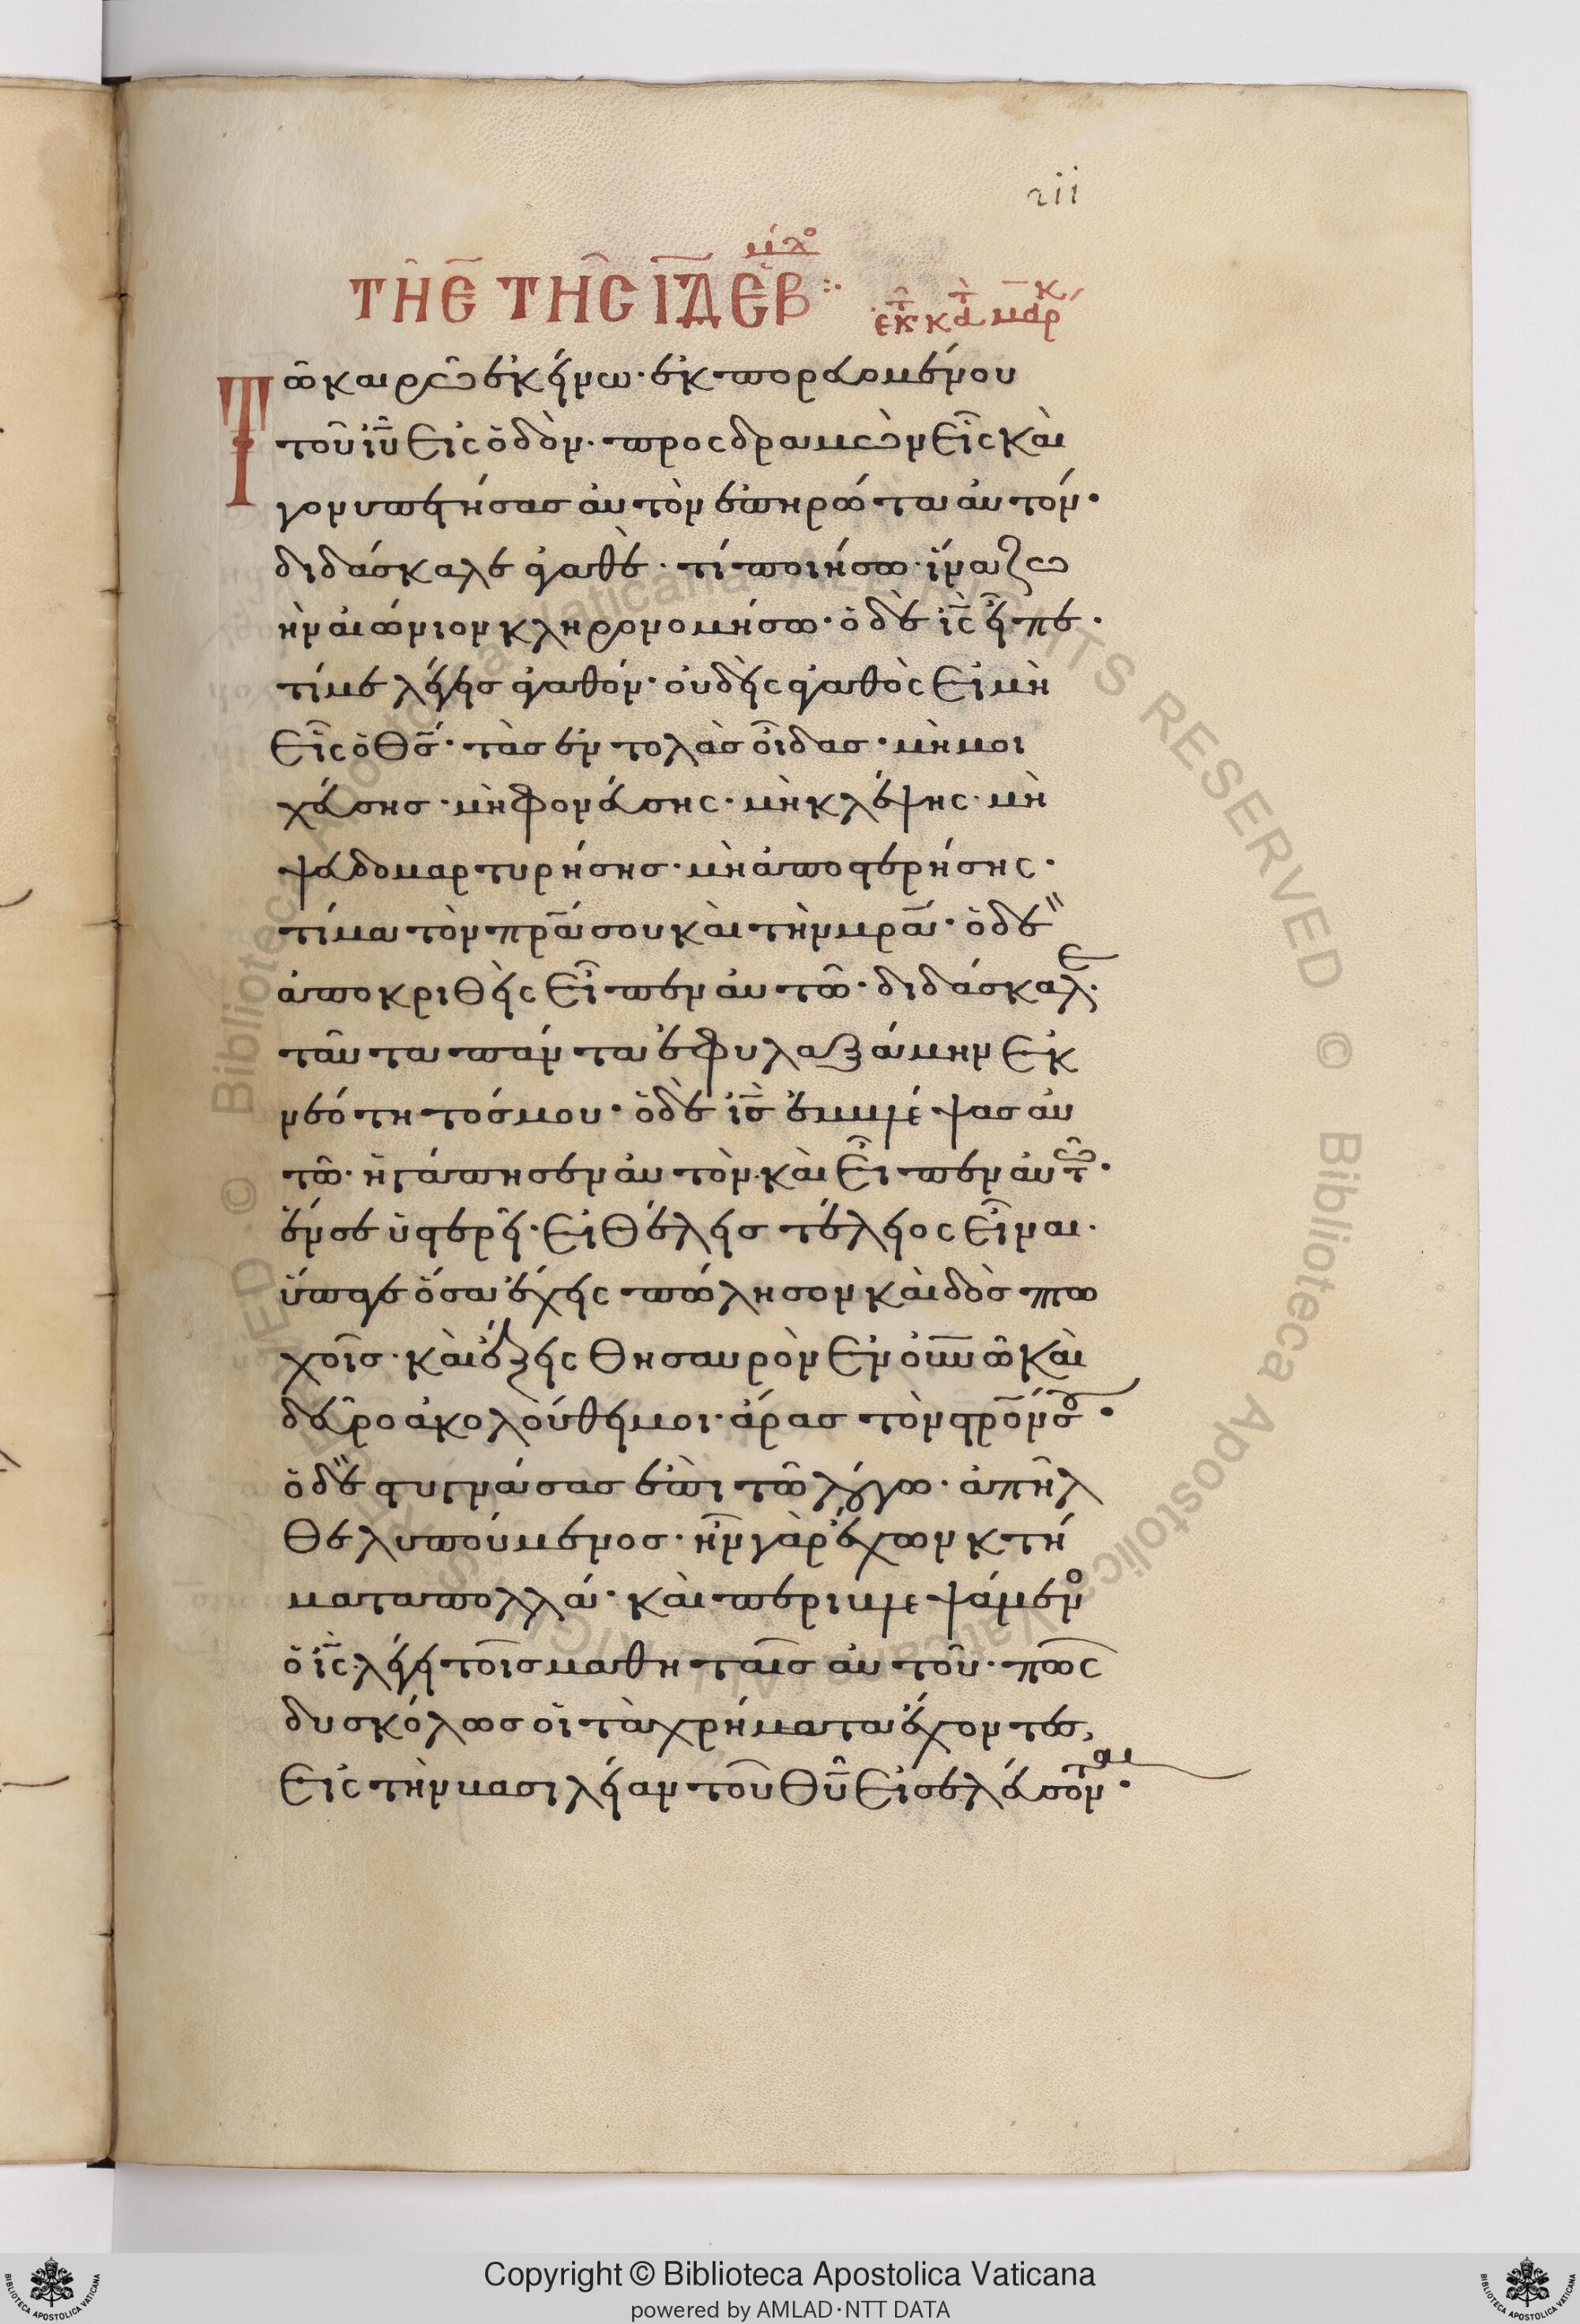 211
ΤΗ Ε̅ ΤΗ͂Ϲ Ι̅Δ̅ ΕΒ ἐκ τ κατὰ μάρκ
Τῶ καιρῶ ἐκείνω· ἐκπορευομένου
τοῦ ἰ̅υ̅ εἰς ὁδὸν· προσδραμὼν εἷς καὶ
γονυπετήσας αὐτὸν ἐπηρώτα αὐτόν·
διδάσκαλε ἀγαθὲ· τί ποιήσω· ἵνα ζω
ὴν αἰώνιον κληρονομήσω· ὁ δὲ ι̅ς̅ εἶπε·
τί με λέγεις ἀγαθόν· οὐδεὶς ἀγαθὸς εἰ μὴ
εἷς ὁ θ̅ς̅· τὰς ἐντολὰς οἶδας· μὴ μοι
χεύσης· μὴ φονεύσης· μὴ κλέψης· μὴ
ψευδομαρτυρήσης· μὴ ἀποστερήσης·
τίμα τὸν π̅ρ̅α̅ σου καὶ τὴν μ̅ρ̅α̅· ὁ δὲ
ἀποκριθεὶς εἶπεν αὐτῶ· διδάσκαλε·
ταῦτα πάντα ἐφυλαξάμην ἐκ
νεότητός μου· ὁ δὲ ι̅ς̅ ἐμβλέψας αὐ
τῶ· ἠγάπησεν αὐτὸν· καὶ εἶπεν αὐτῶ·
ἕν σε ὑστερεῖ· εἰ θέλεις τέλειος εἶναι·
ὕπαγε ὅσα ἔχεις πώλησον καὶ δὸς πτω
χοῖς· καὶ ἕξεις θησαυρὸν ἐν ο̅υ̅ν̅ῶ καὶ
δεῦρο ἀκολούθει μοι· ἄρας τὸν σ̅ρ̅ο̅ν σου·
ὁ δὲ στυγνάσας ἐπὶ τῶ λόγω· ἀπῆλ
θε λυπούμενος· ἦν γὰρ ἔχων κτή
ματα πολλά· καὶ περιβλεψάμενο
ὁ ι̅ς̅· λέγει τοῖς μαθηταῖς αὐτοῦ· πῶς
δυσκόλως οἱ τὰ χρήματα ἔχοντες,
εἰς τὴν βασιλείαν τοῦ θ̅υ̅ εἰσελεύσονται·
Copyright © Biblioteca Apostolica Vaticana
powered by AMLAD·NTT DATA